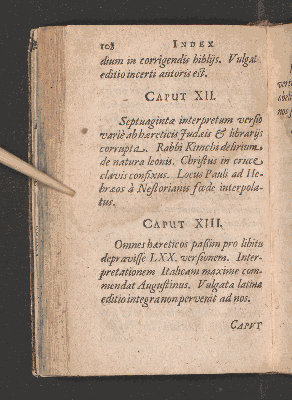 108 INDEX
dium in corrigendis biblijs. Vulgat
editio incerti autoris est.
CAPUT XII.
Septuaginta interpretum versio
variè ab hæreticis Judais & librarijs
corrupta. Rabbi Kimchi delirium
de natura leonis. Christus in cruce
clavis confixus. Locus Pauli ad He-
bræos à Nestorianis fœde interpola-
tus.
CAPUT XIII.
Omnes hæreticos passim pro libitu
depravisse LXX. versionem. Inter-
pretationem Italicam maxime com-
mendat Augustinus. Vulgata latina
editio integra non pervenit ad nos.
CAPUT